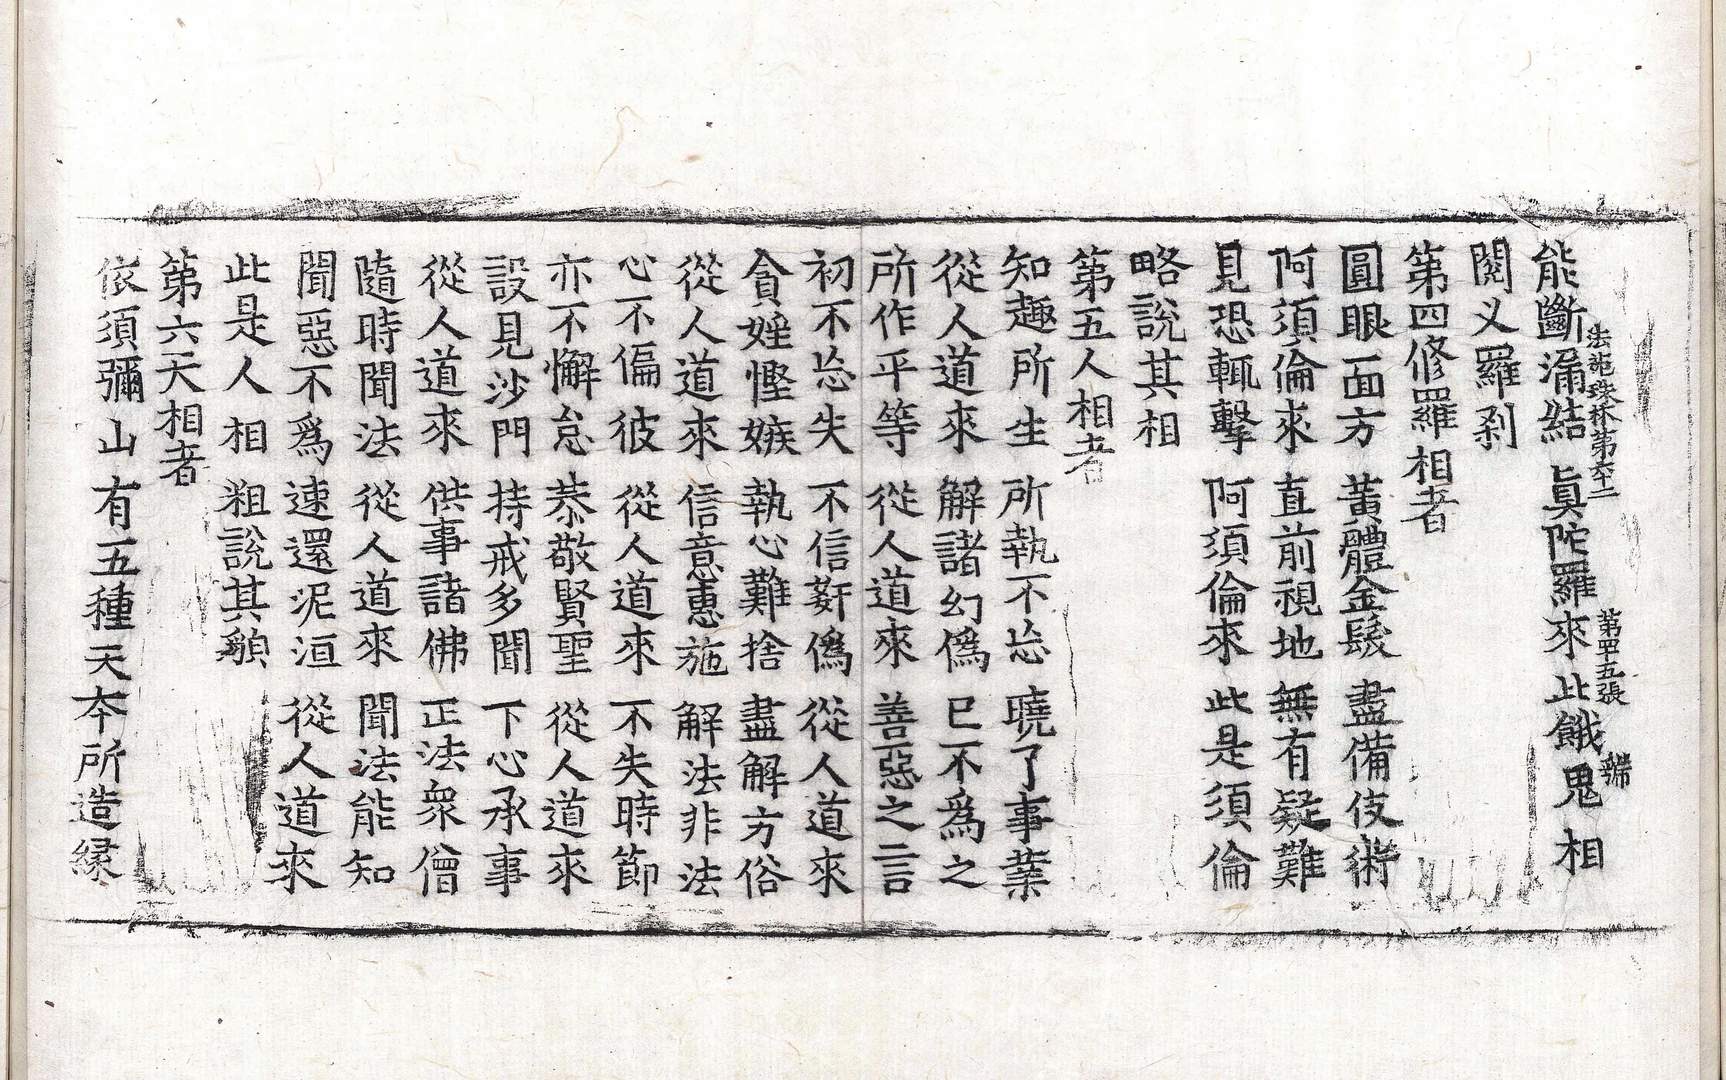 法苑珠林第六十二 第四十五張 號
能斷漏結 眞陁羅來 此餓鬼相
閱义羅剎
第四修羅相者
圓眼面方 黃體金髮 盡備伎術
阿須倫來 直前視地 無有疑難
見恐輒擊 阿須倫來 此是須倫
略說其相
第五人相者
知趣所生 所執不忘 曉了事業
從人道來 解諸幻僞 已不爲之
所作平等 從人道來 善惡之言
初不忘失 不信姧僞 從人道來
貪婬慳嫉 執心難捨 盡解方俗
從人道來 信意惠施 解法非法
心不偏彼 從人道來 不失時節
亦不懈怠 恭敬賢聖 從人道來
設見沙門 持戒多聞 下心承事
從人道來 供事諸佛 正法衆僧
隨時聞法 從人道來 聞法能知
聞惡不爲 速還泥洹 從人道來
此是人相 粗說其貌
第六天相者
依須彌山 有五種天 夲所造緣